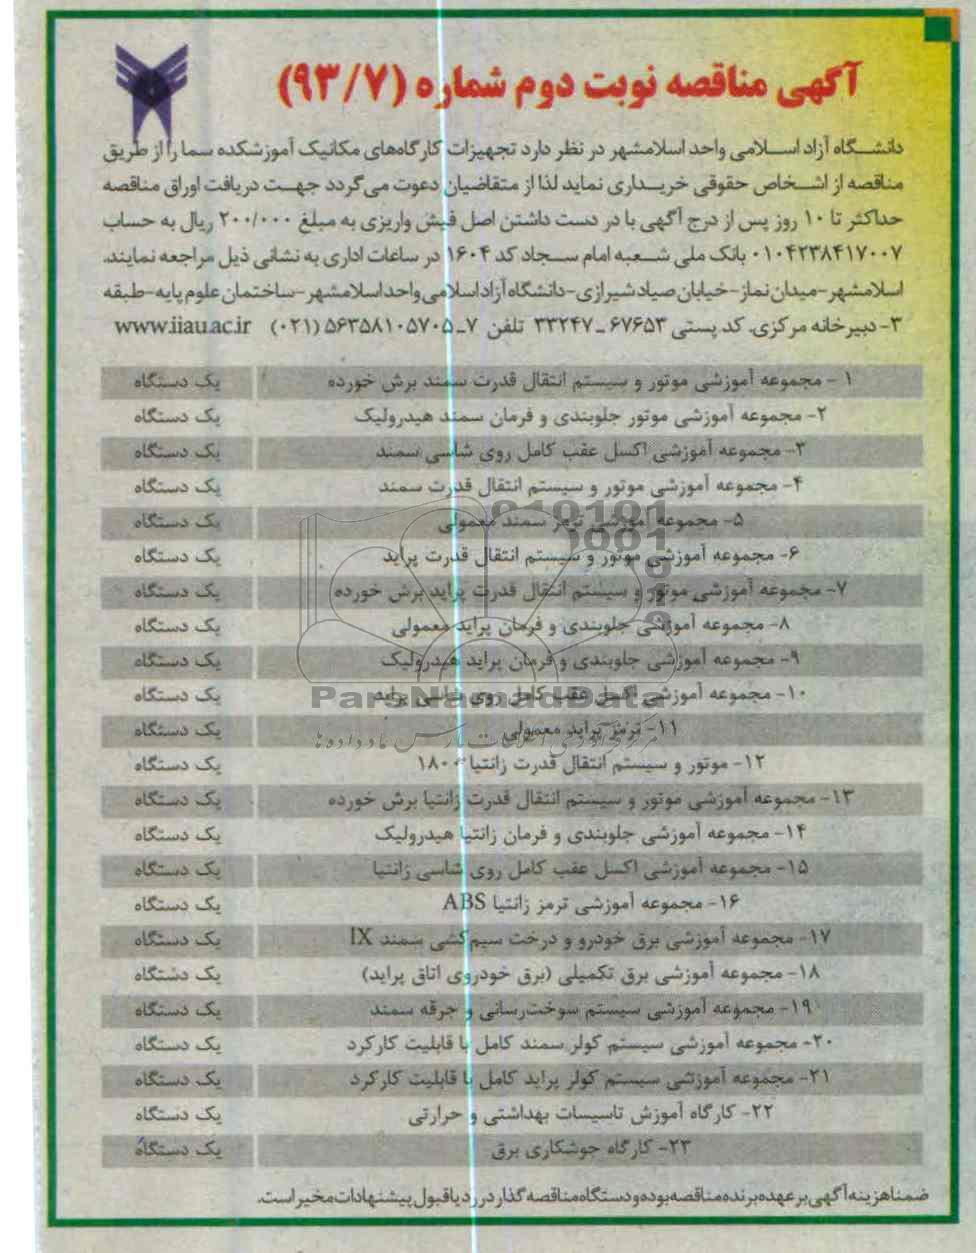 آگهی مناقصه نوبت دوم شماره (۹۳/۷)
دانشگاه آزاد اسلامی واحد اسلامشهر در نظر دارد تجهیزات کارگاههای مکانیک آموزشکده سما را از طریق
مناقصه از اشخاص حقوقی خریداری نماید لذا از متقاضیان دعوت می‌گردد جهت دریافت اوراق مناقصه
حداکثر تا ۱۰ روز پس از درج آگهی با در دست داشتن اصل فیش واریزی به مبلغ ۲۰۰/۰۰۰ ریال به حساب
۰۱۰۴۲۳۸۴۱۷۰۰۷ بانک ملی شعبه امام سجاد کد ۱۶۰۴ در ساعات اداری به نشانی ذیل مراجعه نمایند.
اسلامشهر-میدان نماز-خیابان صیاد شیرازی-دانشگاه آزاد اسلامی واحد اسلامشهر-ساختمان علوم پایه-طبقه
۳- دبیرخانه مرکزی. کد پستی ۶۷۶۵۳ـ۳۳۲۴۷ تلفن ۷ـ۵۶۳۵۸۱۰۵۷۰۵ (۰۲۱) www.iiau.ac.ir
۱ - مجموعه آموزشی موتور و سیستم انتقال قدرت سمند برش خورده یک دستگاه
۲- مجموعه آموزشی موتور جلوبندی و فرمان سمند هیدرولیک یک دستگاه
۳- مجموعه آموزشی اکسل عقب کامل روی شاسی سمند یک دستگاه
۴- مجموعه آموزشی موتور و سیستم انتقال قدرت سمند یک دستگاه
۵- مجموعه آموزشی ترمز سمند معمولی یک دستگاه
۶- مجموعه آموزشی موتور و سیستم انتقال قدرت پراید یک دستگاه
۷- مجموعه آموزشی موتور و سیستم انتقال قدرت پراید برش خورده یک دستگاه
۸- مجموعه آموزشی جلوبندی و فرمان پراید معمولی یک دستگاه
۹- مجموعه آموزشی جلوبندی و فرمان پراید هیدرولیک یک دستگاه
۱۰- مجموعه آموزشی اکسل عقب کامل روی شاسی پراید یک دستگاه
ParsNamadData
۱۱- ترمز پراید معمولی یک دستگاه
۱۲- موتور و سیستم انتقال قدرت زانتیا ۱۸۰۰ یک دستگاه
۱۳- مجموعه آموزشی موتور و سیستم انتقال قدرت زانتیا برش خورده یک دستگاه
۱۴- مجموعه آموزشی جلوبندی و فرمان زانتیا هیدرولیک یک دستگاه
۱۵- مجموعه آموزشی اکسل عقب کامل روی شاسی زانتیا یک دستگاه
۱۶- مجموعه آموزشی ترمز زانتیا ABS یک دستگاه
۱۷- مجموعه آموزشی برق خودرو و درخت سیم کشی سمند IX یک دستگاه
۱۸- مجموعه آموزشی برق تکمیلی (برق خودروی اتاق پراید) یک دستگاه
۱۹- مجموعه آموزشی سیستم سوخت‌رسانی و جرقه سمند یک دستگاه
۲۰- مجموعه آموزشی سیستم کولر سمند کامل با قابلیت کارکرد یک دستگاه
۲۱- مجموعه آموزشی سیستم کولر پراید کامل با قابلیت کارکرد یک دستگاه
۲۲- کارگاه آموزش تاسیسات بهداشتی و حرارتی یک دستگاه
۲۳- کارگاه جوشکاری برق یک دستگاه
ضمنا هزینه آگهی بر عهده برنده مناقصه بوده و دستگاه مناقصه گذار در رد یا قبول پیشنهادات مخیر است.